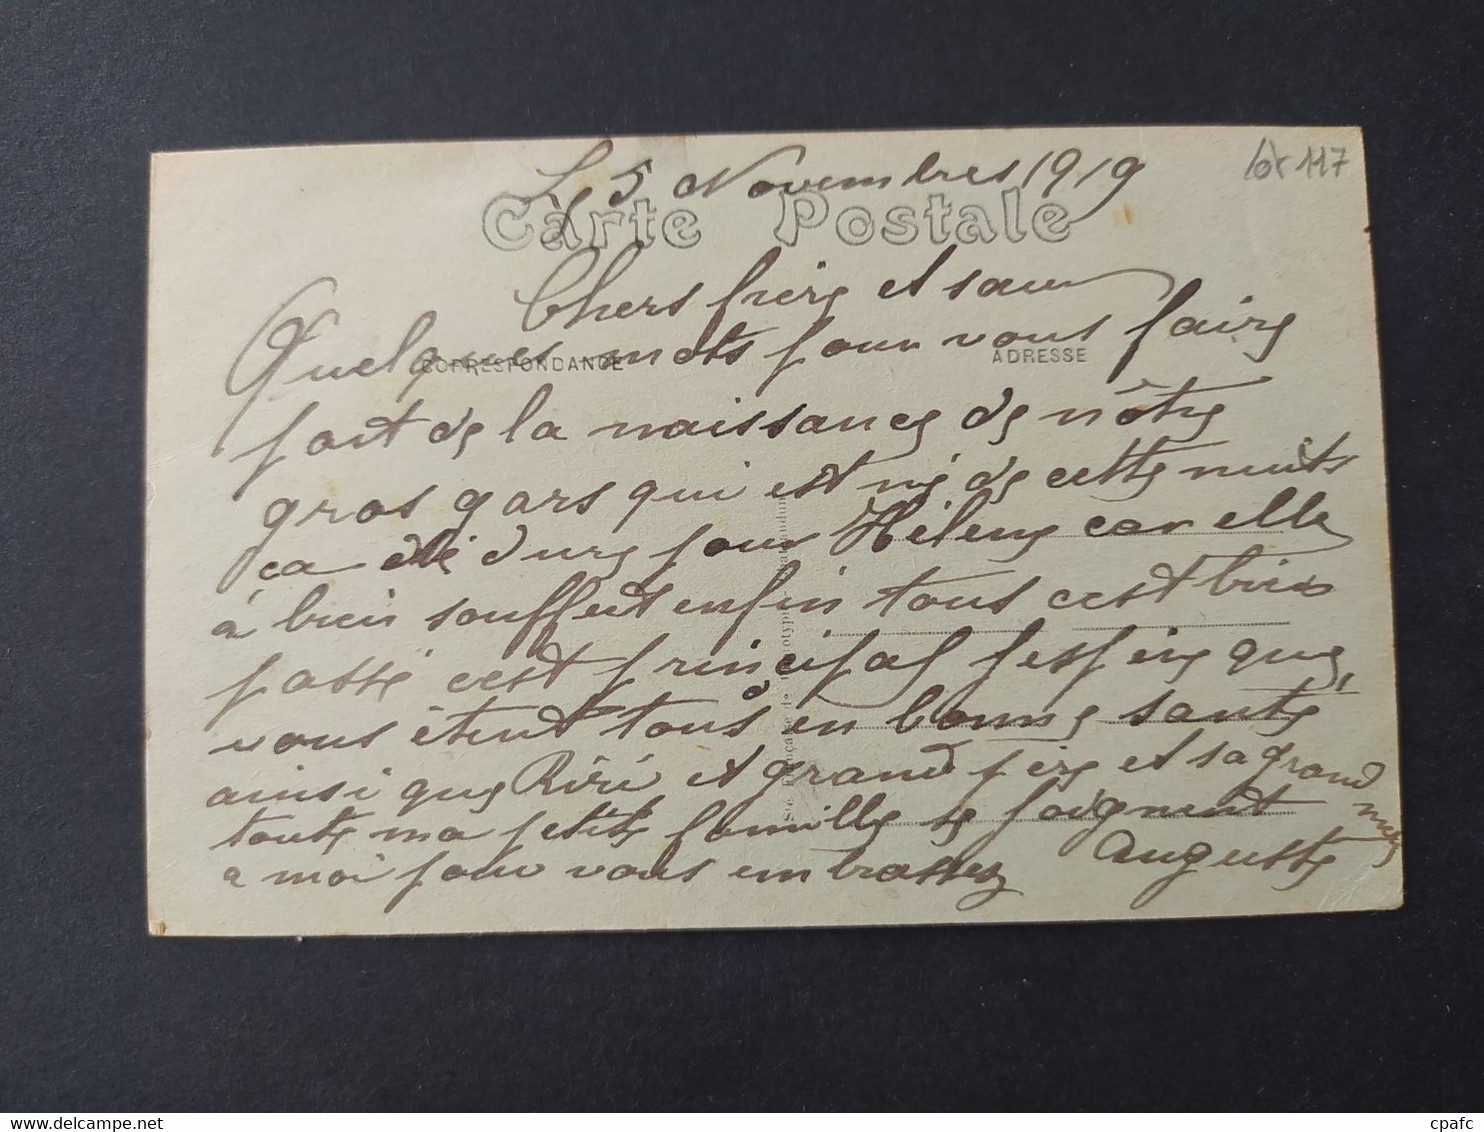 Le 5 Novembres 1919
117
Carte Postale
Chers frère et sœur
Quelques mots pour vous faire
CORRESPONDANCE
ADRESSE
part de la naissance de nôtre
gros gars qui est né de cette nuits
ca été dure pour Hélène car elle
à bien souffert enfin tous c'est bien
passé c'est principal j'espère que
vous êtent tous en bonne santé
ainsi que Riri et grand père et sa grand mère
toute ma petite famille se joignent
a moi pour vous embrasser Auguste
cpafc